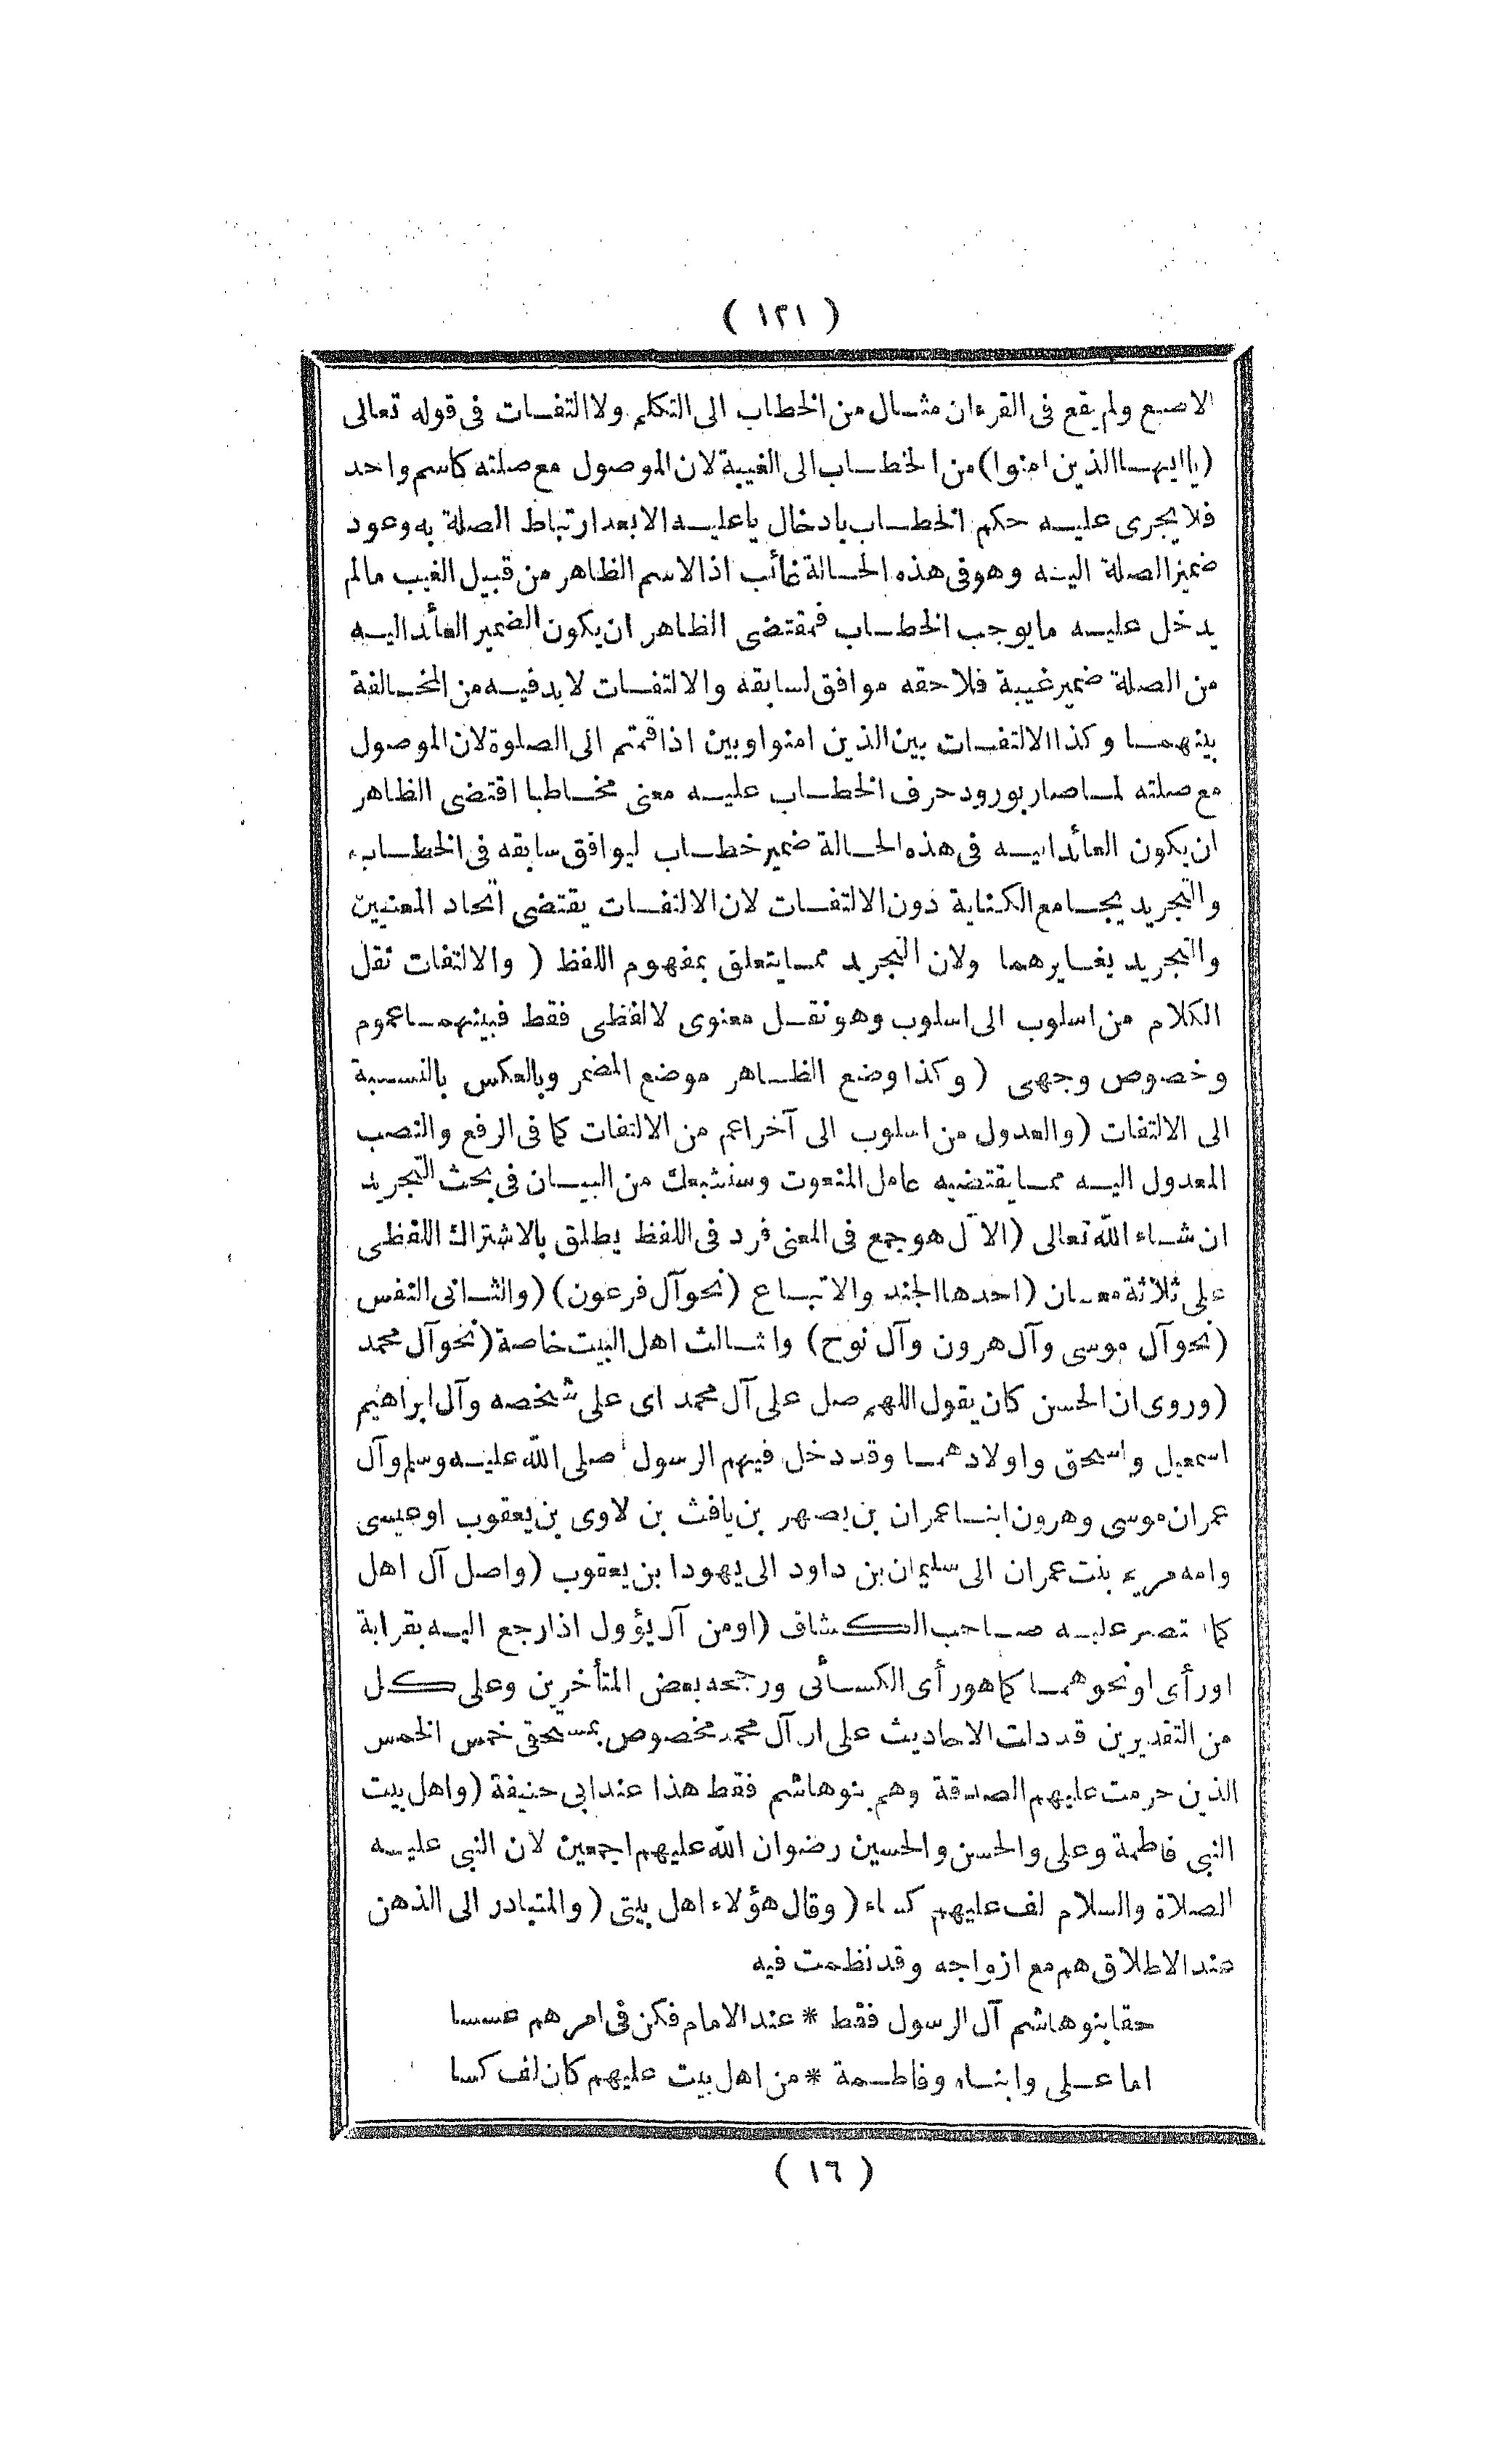 ( ١٢١ )
الاصبع ولم يقع فى القرءان مثال من الخطاب الى التكلم ولا التفات فى قوله تعالى
(يا ايها الذين امنوا) من الخطاب الى الغيبة لان الموصول مع صلته كاسم واحد
فلا يجرى عليه حكم الخطاب بادخال يا عليه الا بعد ارتباط الصلة به وعود
ضمير الصلة اليه وهو فى هذه الحالة غائب اذ الاسم الظاهر من قبيل الغيب مالم
يدخل عليه ما يوجب الخطاب فمقتضى الظاهر ان يكون الضمير العائد اليه
من الصلة ضمير غيبة فلاحقه موافق لسابقه والالتفات لا بد فيه من المخالفة
بينهما وكذا الالتفات بين الذين امنوا وبين اذا قمتم الى الصلوة لان الموصول
مع صلته لما صار بورود حرف الخطاب عليه معنى مخاطبا اقتضى الظاهر
ان يكون العائد اليه فى هذه الحالة ضمير خطاب ليوافق سابقه فى الخطاب
والتجريد يجامع الكناية دون الالتفات لان الالتفات يقتضى اتحاد المعنيين
والتجريد يغايرهما ولان التجريد مما يتعلق بمفهوم اللفظ ( والالتفات نقل
الكلام من اسلوب الى اسلوب وهو نقل معنوى لا لفظى فقط فبينهما عموم
وخصوص وجهى (وكذا وضع الظاهر موضع المضمر وبالعكس بالنسبة
الى الالتفات (والعدول من اسلوب الى آخر اعم من الالتفات كما فى الرفع والنصب
المعدول اليه مما يقتضيه عامل المنعوت وسنشبعك من البيان فى بحث التجريد
ان شاء الله تعالى (الآل هو جمع فى المعنى فرد فى اللفظ يطلق بالاشتراك اللفظى
على ثلاثة معان (احدها الجند والاتباع (نحو آل فرعون) (والثانى النفس
(نحو آل موسى وآل هرون وآل نوح) والثالث اهل البيت خاصة (نحو آل محمد
(وروى ان الحسن كان يقول اللهم صل على آل محمد اى على شخصه وآل ابراهيم
اسمعيل واسحق واولادهما وقد دخل فيهم الرسول صلى الله عليه وسلم وآل
عمران موسى وهرون ابنا عمران بن يصهر بن يافث بن لاوى بن يعقوب او عيسى
وامه مريم بنت عمران الى سليمان بن داود الى يهودا بن يعقوب (واصل آل اهل
كما اقتصر عليه صاحب الكشاف (او من آل يؤول اذا رجع اليه بقرابة
او رأى او نحوهما كما هو رأى الكسائى ورجحه بعض المتأخرين وعلى كل
من التقديرين قد دلت الاحاديث على ان آل محمد مخصوص بمستحقى خمس الخمس
الذين حرمت عليهم الصدقة وهم بنو هاشم فقط هذا عند ابى حنيفة (واهل بيت
النبى فاطمة وعلى والحسن والحسين رضوان الله عليهم اجمعين لان النبى عليه
الصلاة والسلام لف عليهم كساء (وقال هؤلاء اهل بيتى (والمتبادر الى الذهن
عند الاطلاق هم مع ازواجه وقد نظمت فيه
حقا بنو هاشم آل الرسول فقط * عند الامام فكن فى امرهم عسسا
اما على وابناه وفاطمة * من اهل بيت عليهم كان لف كسا
( ١٦ )